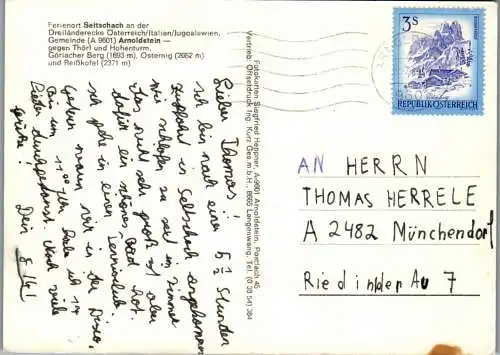 Ferienort Seltschach an der
Dreiländerecke Österreich/Italien/Jugoslawien,
Gemeinde (A 9601) Arnoldstein —
gegen Thörl und Hohenturm,
Göriacher Berg (1693 m), Osternig (2052 m)
und Reißkofel (2371 m)
Lieber Thomas!
ich bin nach einer 5½ Stunden
Zugfahrt in Seltschach angekommen
Wir schlafen zu
in Zimmer
das nicht sehr groß ist aber
dafür ein schönes Bad hat.
ich gehe in einen Tennisclub.
Gestern waren wir in der Disco.
Bis um 11⁰⁰ Uhr
Lieder durchgetanzt. Noch viele
grüße! Dein
Fotokarten Siegfried Heppner, A-9601 Arnoldstein, Postfach 45
Vertrieb: Offsetdruck Ing. Kurz Ges.m.b.H., 8665 Langenwang, Tel. (0 38 54) 384
3 S
REPUBLIK ÖSTERREICH
AN HERRN
THOMAS HERRELE
A 2482 Münchendorf
Ried in der Au 7